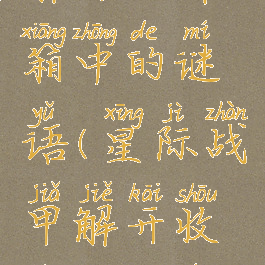 xiāng zhōng de mí
箱中的谜
yǔ xīng jì zhàn
语(星际战
jiǎ jiě kāi shōu
甲解开收